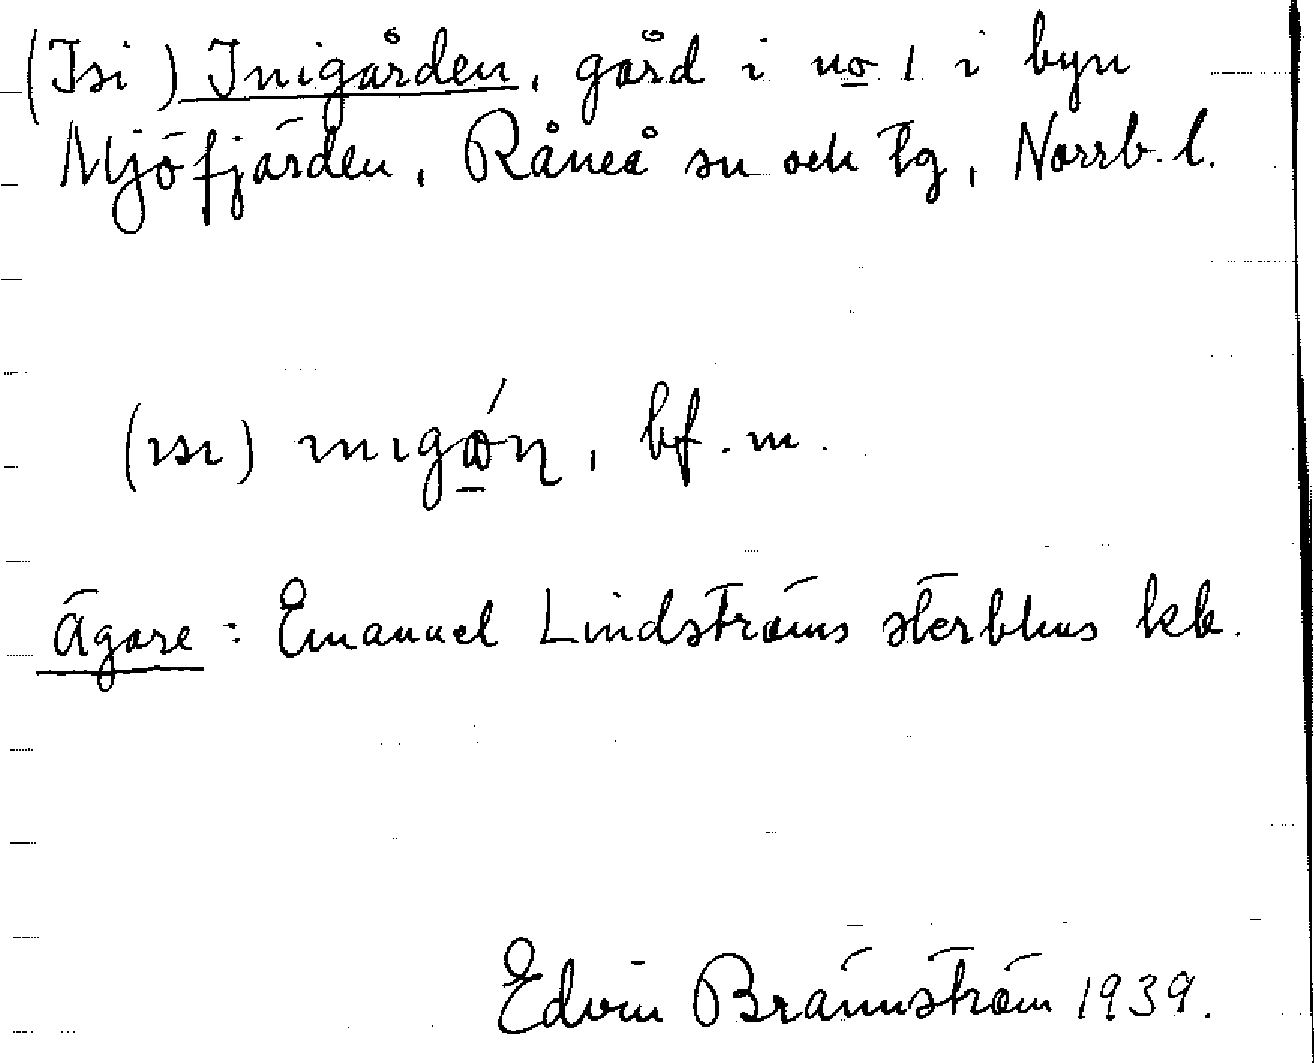 (Isi) Inigården, gård i no 1 i byn
Mjöfjärden, Råneå sn och tg, Norrb. l.
(ısı) ınıgɷ́ɳ, bf. m.
Ägare: Emanuel Lindströms sterbhus kb.
Edvin Brännström 1939.